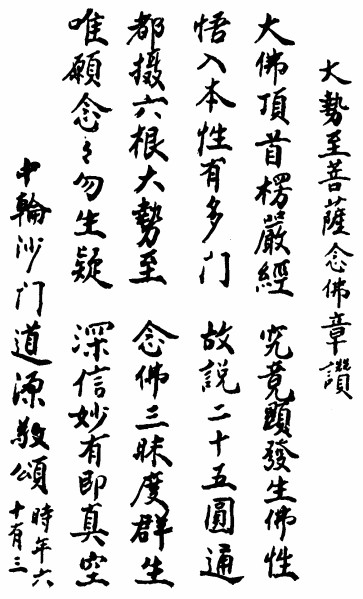 大勢至菩薩念佛章讚
大佛頂首楞嚴經 究竟顯發生佛性
悟入本性有多门 故説二十五圓通
都摄六根大勢至 念佛三昧度群生
唯願念々勿生疑 深信妙有即真空
中輪沙门道源敬頌 時年六
十有三